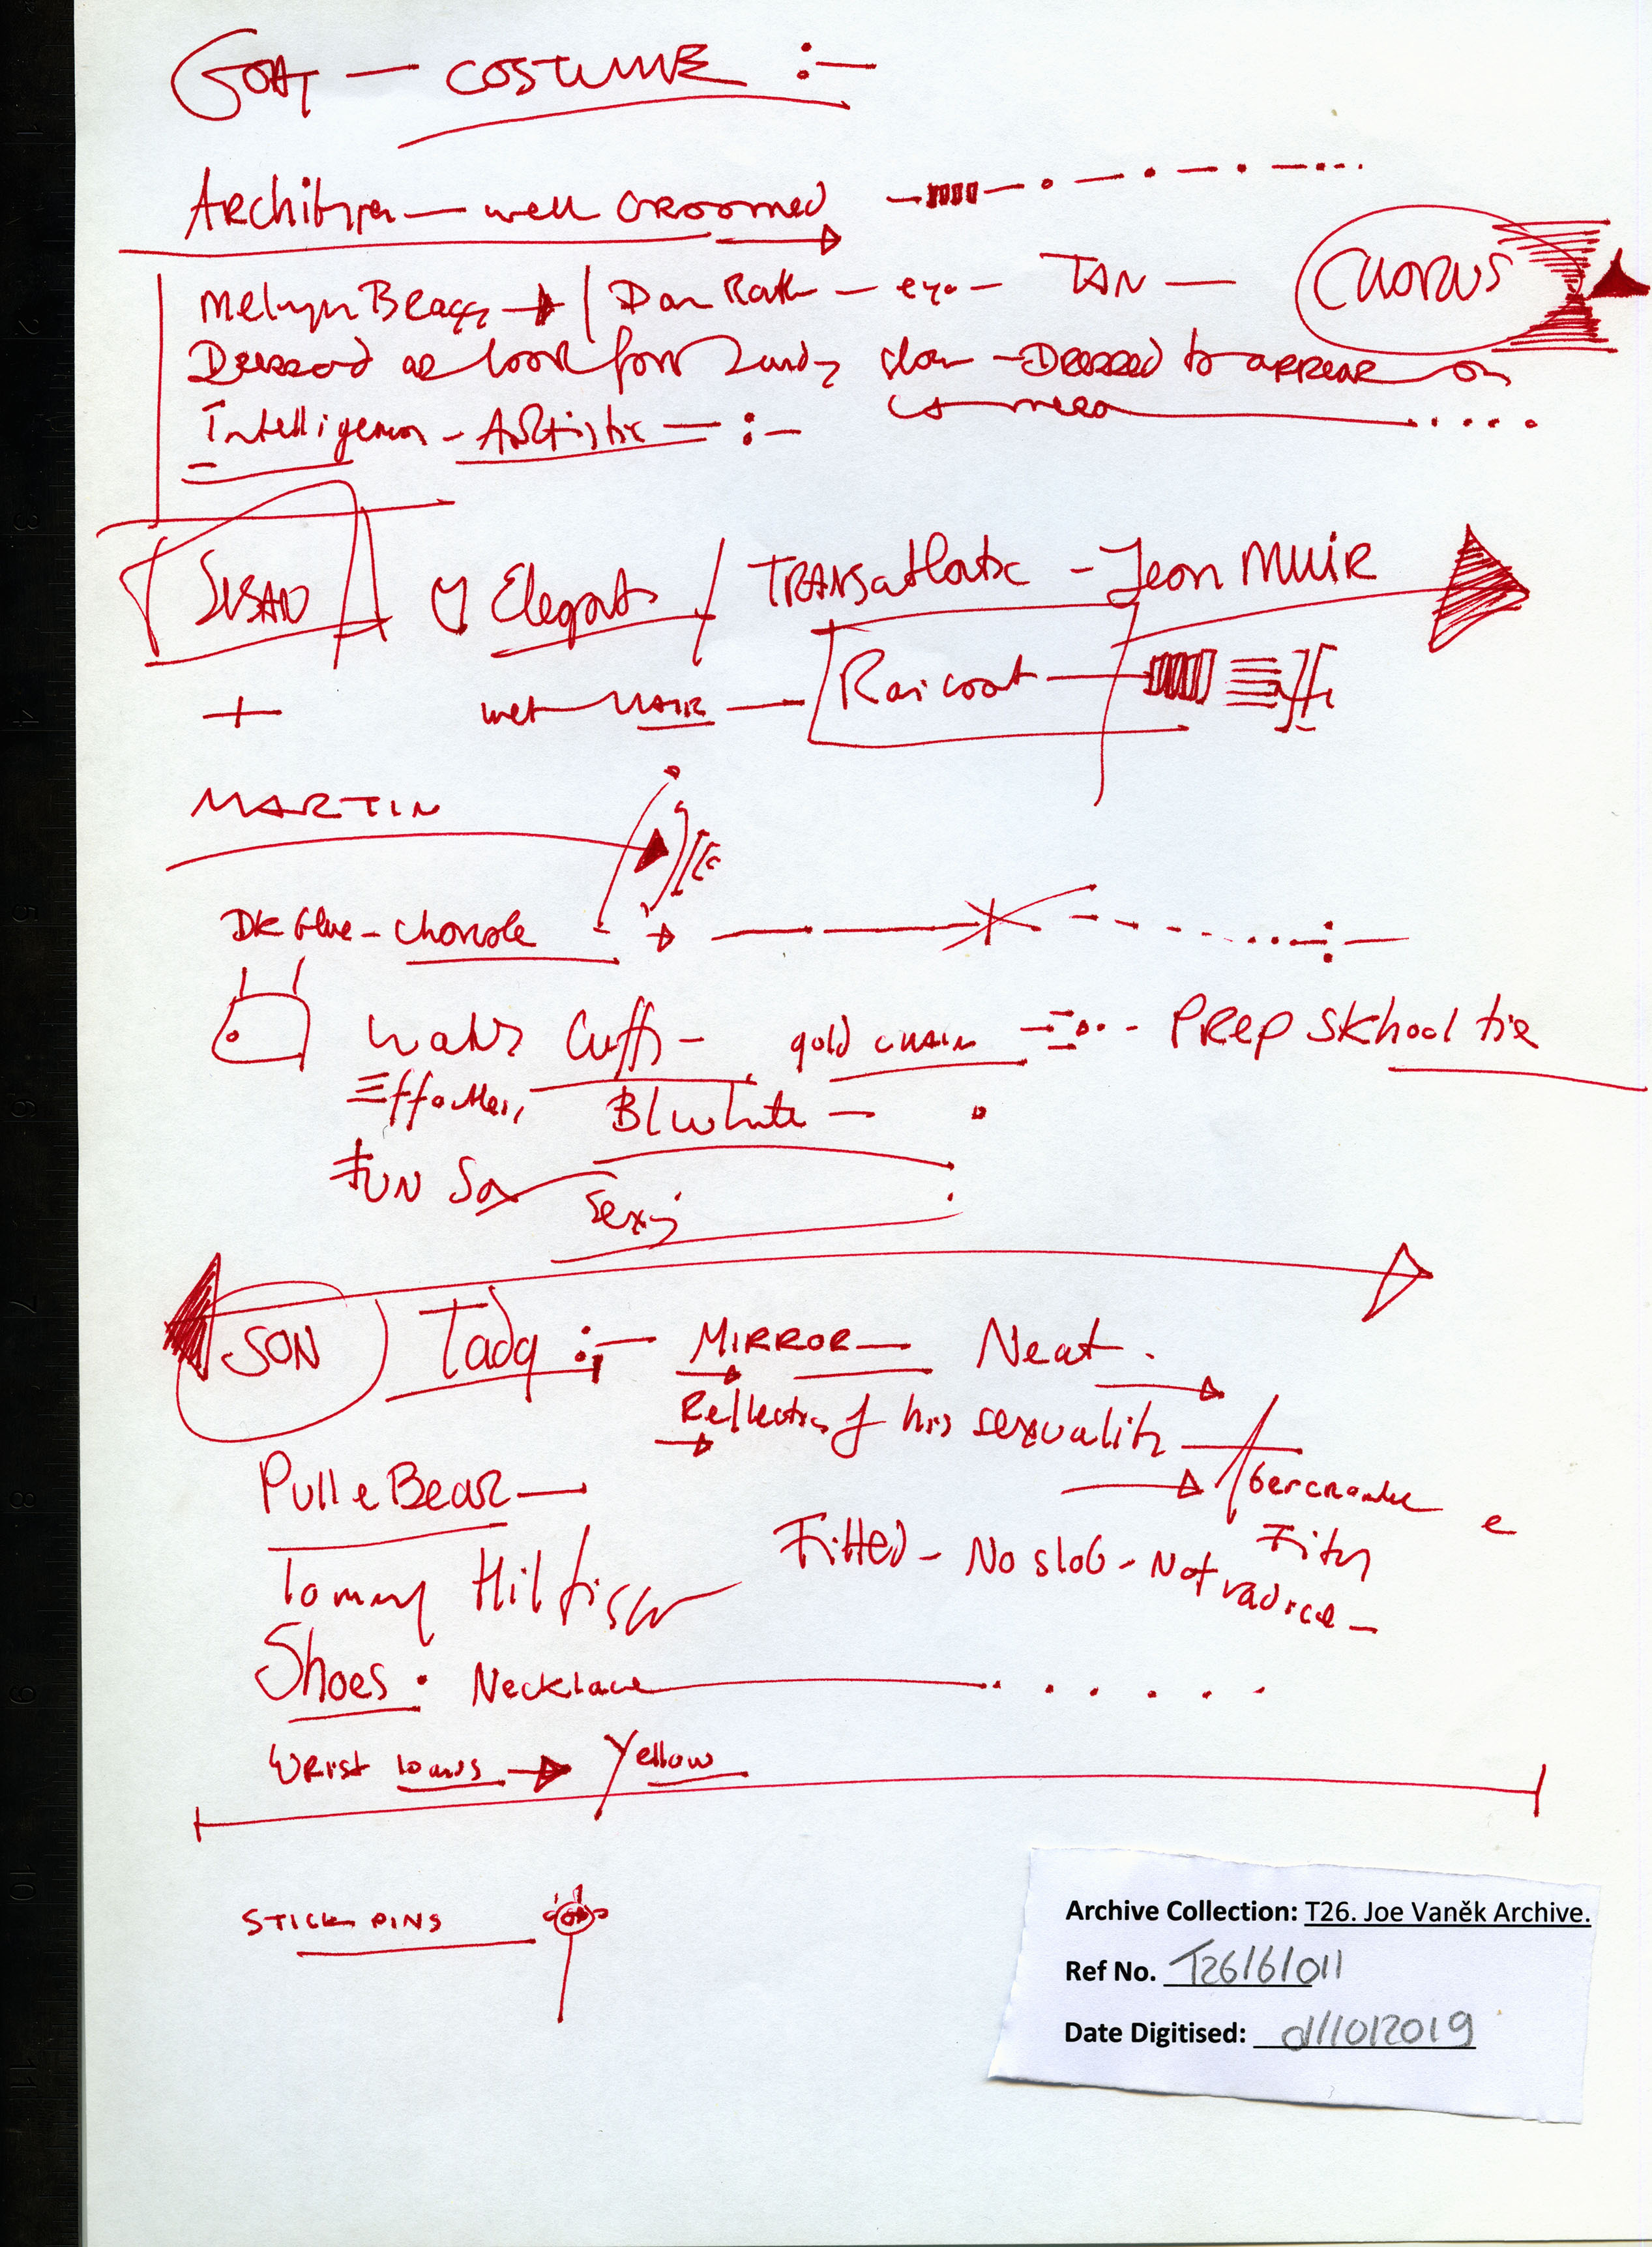 GOAT — COSTUME :—
Architype — well GROOMED
Melvyn Bragg → / Dan Rath — eye — TAN — CHORUS
Dressed as look for Sunday — DRESSED to appear on
camera
Intelligence - Artistic — :—
SUSAN Elegant / TRANSatlatic - Jean MUIR
+ wet HAIR — Raicoat
MARTIN
DK blue - charcole
Watch Cuffs - gold CHAIN - PREP SKhool tie
Effortless Bl white —
FUN Sox Sexy
SON Tadg :— MIRROR — Neat.
Reflection of his sexuality
Pull e Bear — Abercrombie e
Fitch
Fitted - No slob - Not radical -
Tommy Hilfiger
Shoes. Necklace
Wrist bands → Yellow
STICK PINS
Archive Collection: T26. Joe Vaněk Archive.
Ref No. T26/6/011
Date Digitised: 01/10/2019